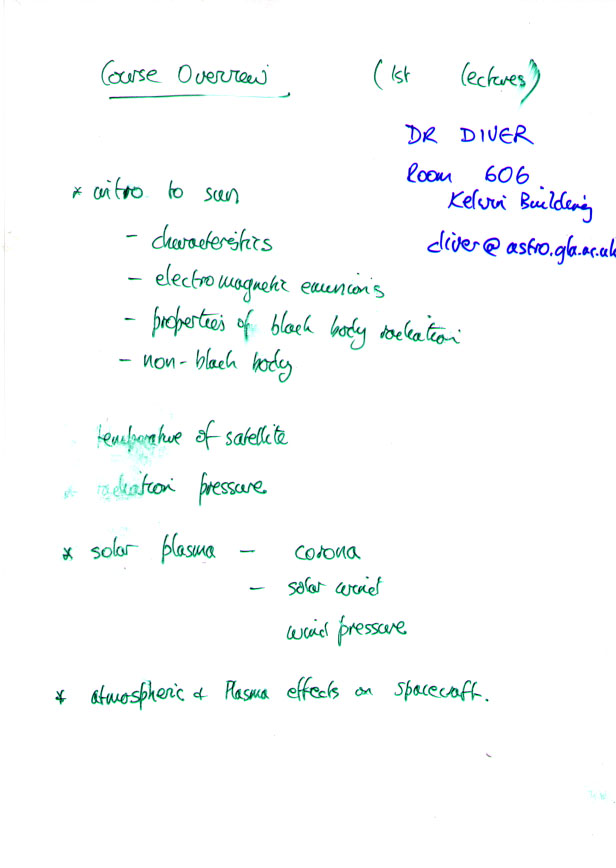 Course Overview (1st lectures)
DR DIVER
Room 606
Kelvin Building
diver@astro.gla.ac.uk
* intro to sun
- characteristics
- electromagnetic emissions
- properties of black body radiation
- non-black body
temperature of satellite
* radiation pressure
* solar plasma - corona
- solar wind
wind pressure
* atmospheric & Plasma effects on spacecraft.